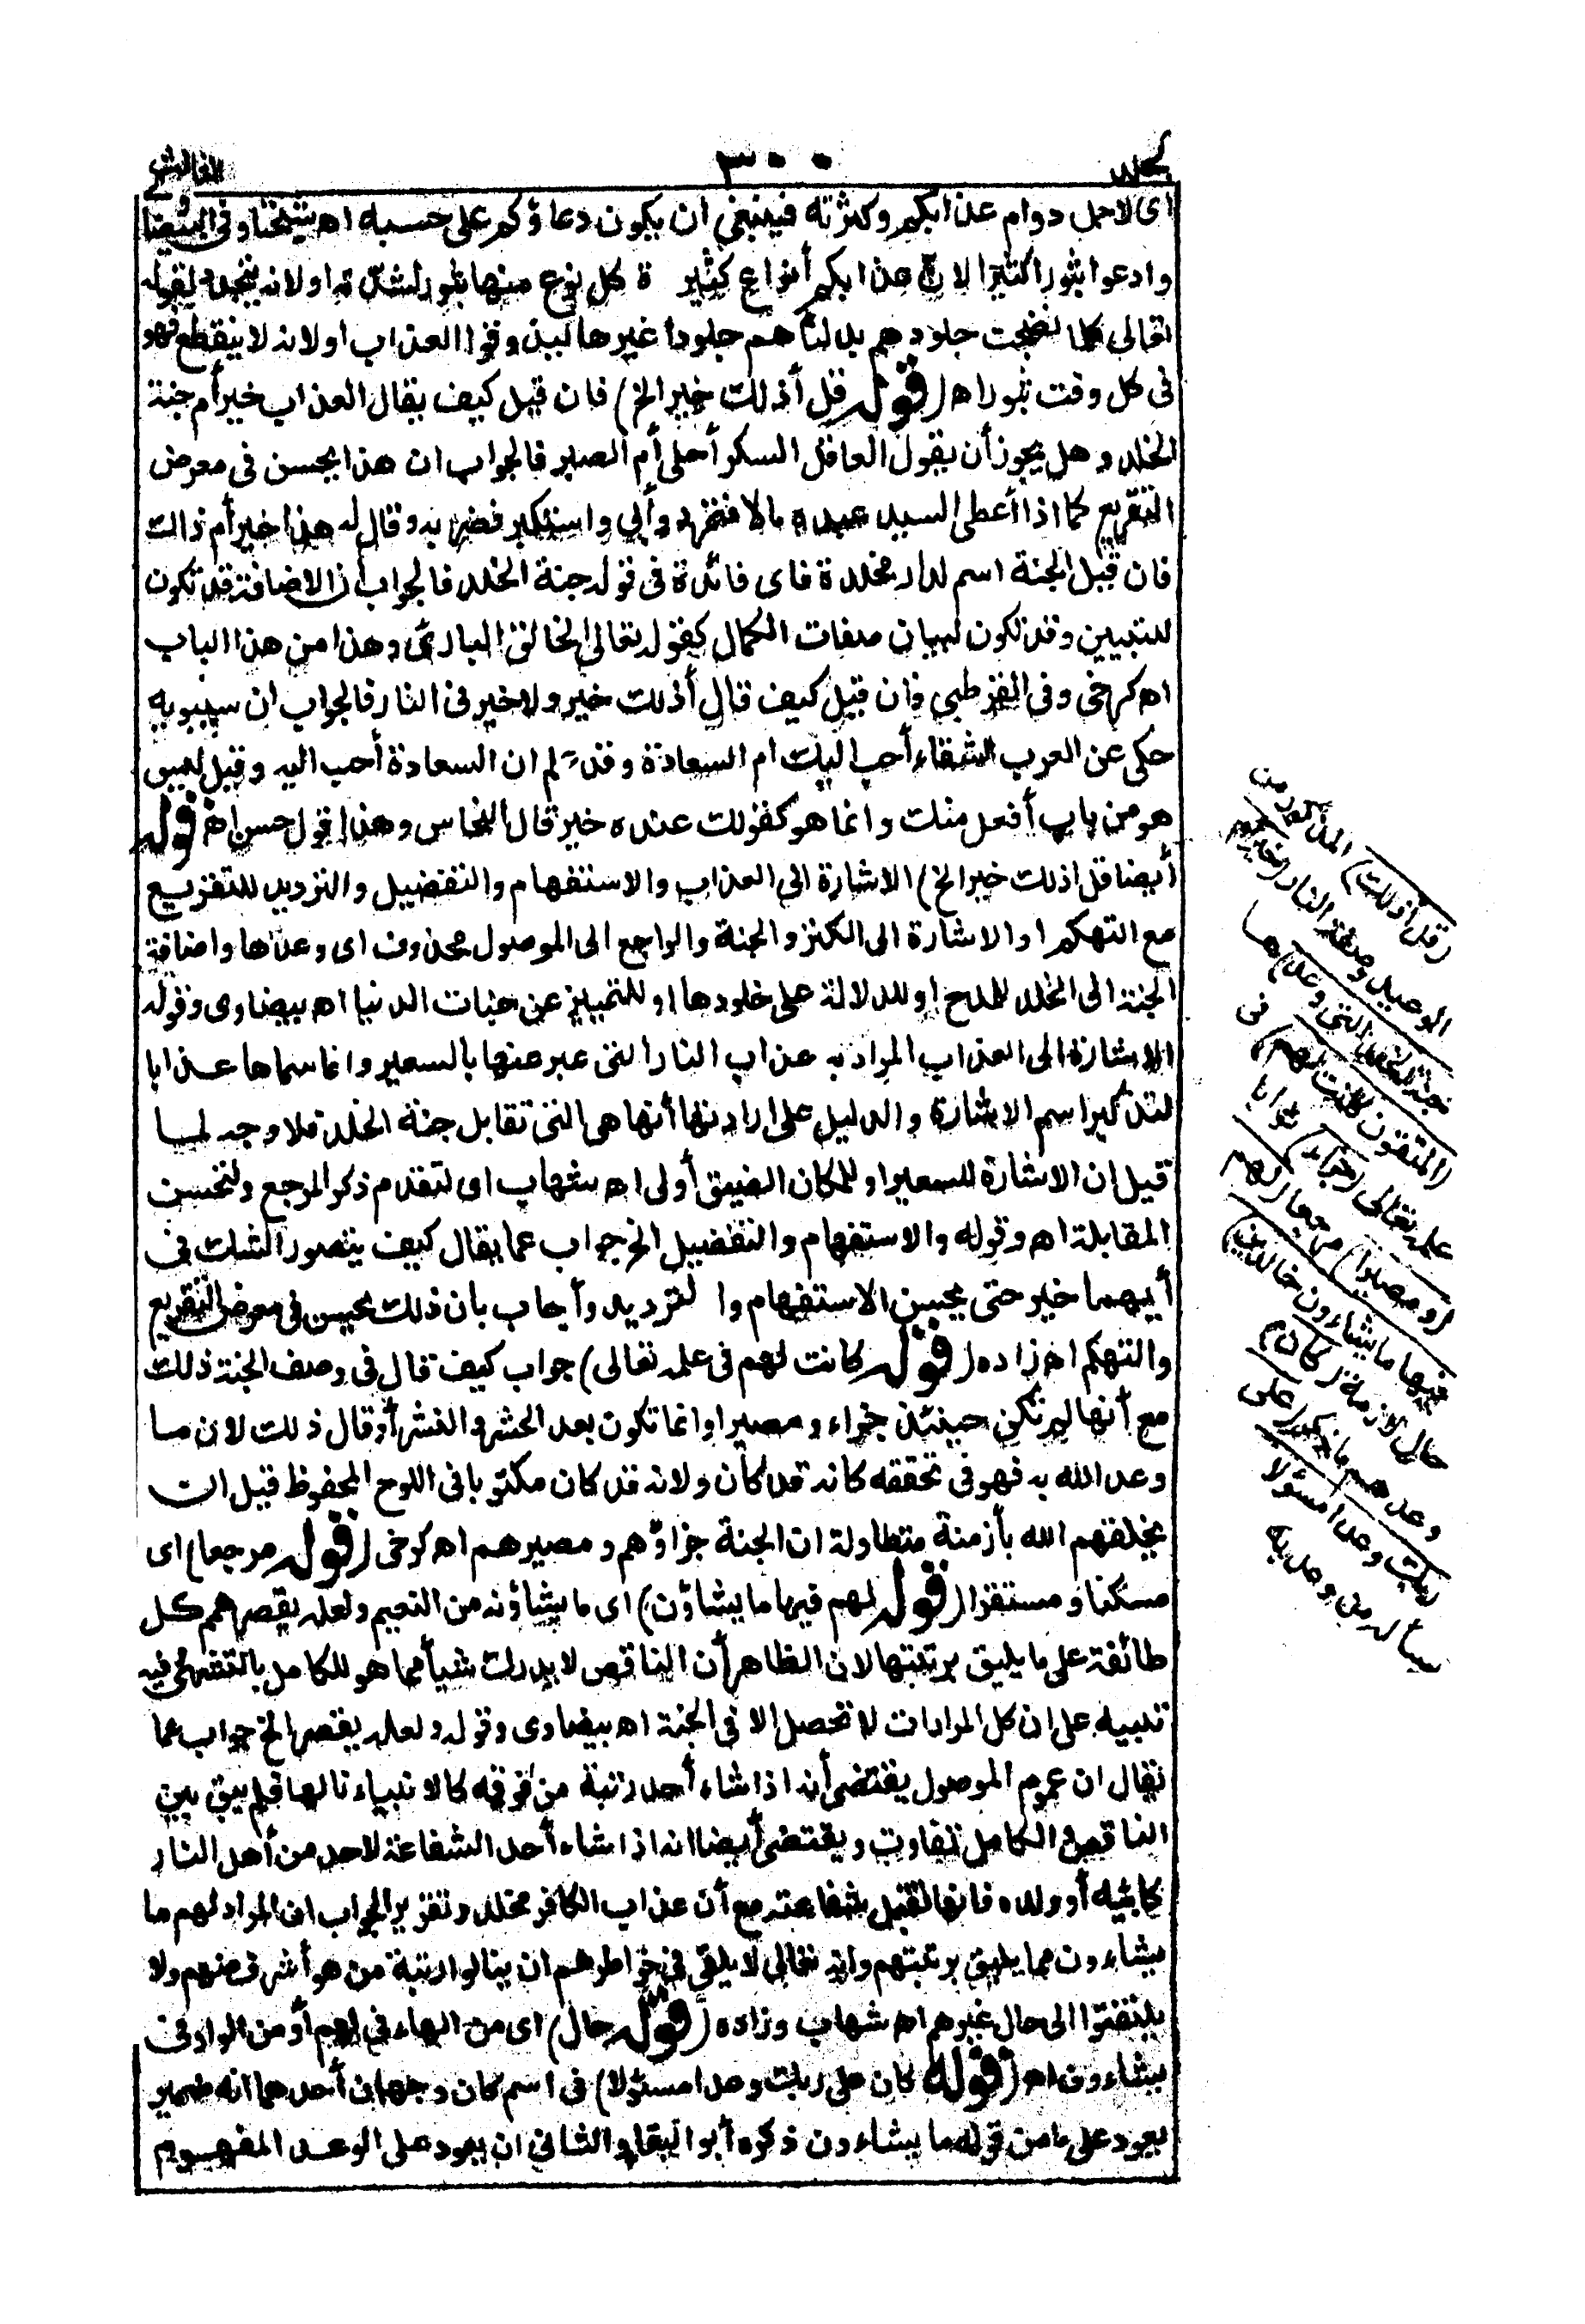 جلد
٣٠٠
الثالث
اى لاجل دوام عذابكم وكثرته فينبغى ان يكون دعاؤكم على حسبه اه شيخنا وفى البيضا
وادعوا ثبورا كثيرا لان عذابكم أنواع كثيرة كل نوع منها ثبور لشدته او لانه يتجدد لقوله
تعالى كلما نضجت جلودهم بدلناهم جلودا غيرها ليذوقوا العذاب او لانه لا ينقطع فهو
فى كل وقت ثبور اه (قوله قل أذلك خير الخ) فان قيل كيف يقال العذاب خير أم جنة
الخلد وهل يجوز أن يقول العاقل السكر أحلى أم الصبر فالجواب ان هذا يحسن فى معرض
التقريع كما اذا أعطى السيد عبده مالا فتمرد وأبى واستكبر فضربه وقال له هذا خير أم ذاك
فان قيل الجنة اسم لدار مخلدة فاى فائدة فى قوله جنة الخلد فالجواب ان الاضافة قد تكون
للتبيين وقد تكون لبيان صفات الكمال كقوله تعالى الخالق البارئ وهذا من هذا الباب
اه كرخى وفى القرطبى فان قيل كيف قال أذلك خير ولا خير فى النار فالجواب ان سيبويه
حكى عن العرب الشقاء أحب اليك ام السعادة وقد علم ان السعادة أحب اليه وقيل ليس
هو من باب أفعل منك وانما هو كقولك عنده خير قال النحاس وهذا قول حسن اه (قوله
أيضا قل اذلك خير الخ) الاشارة الى العذاب والاستفهام والتفضيل والترديد للتقريع
مع التهكم او الاشارة الى الكنز والجنة والراجع الى الموصول محذوف اى وعدها واضافة
الجنة الى الخلد للمدح او للدلالة على خلودها او للتمييز عن جنات الدنيا اه بيضاوى وقوله
الاشارة الى العذاب المراد به عذاب النار التى عبر عنها بالسعير وانما سماها عذابا
لتذكير اسم الاشارة والدليل على ارادتها أنها هى التى تقابل جنة الخلد فلا وجه لما
قيل ان الاشارة للسعير او للمكان الضيق أولى اه شهاب اى لتقدم ذكر المرجع ولتحسن
المقابلة اه وقوله والاستفهام والتفضيل الخ جواب عما يقال كيف يتصور الشك فى
أيهما خير حتى يحسن الاستفهام والترديد وأجاب بان ذلك يحسن فى معرض التقريع
والتهكم اه زاده (قوله كانت لهم فى علمه تعالى) جواب كيف قال فى وصف الجنة ذلك
مع أنها لم تكن حينئذ جزاء ومصيرا وانما تكون بعد الحشر والنشر أو قال ذلك لان ما
وعد الله به فهو فى تحققه كانه قد كان ولانه قد كان مكتوبا فى اللوح المحفوظ قبل ان
يخلقهم الله بأزمنة متطاولة ان الجنة جزاؤهم ومصيرهم اه كرخى (قوله مرجعا) اى
مسكنا ومستقرا (قوله لهم فيها ما يشاؤن) اى ما يشاؤنه من النعيم ولعله يقصر هم كل
طائفة على ما يليق برتبتها لان الظاهر أن الناقص لا يدرك شيأ مما هو للكامل بالتشهى وفيه
تنبيه على ان كل المرادات لا تحصل الا فى الجنة اه بيضاوى وقوله ولعله يقصر الخ جواب عما
يقال ان عموم الموصول يقتضى أنه اذا شاء أحد رتبة من فوقه كالانبياء نالها فلم يبق بين
الناقص والكامل تفاوت ويقتضى أيضا انه اذا شاء أحد الشفاعة لاحد من أهل النار
كابيه أو ولده فانها تقبل شفاعته مع أن عذاب الكافر مخلد وتقرير الجواب ان المراد لهم ما
يشاءون مما يليق برتبتهم وانه تعالى لا يلقى فى خواطرهم ان ينالوا رتبة من هو أشرف منهم ولا
يلتفتوا الى حال غيرهم اه شهاب وزاده (قوله حال) اى من الهاء فى لهم أو من الواو فى
يشاءون اه (قوله كان على ربك وعدا مسئولا) فى اسم كان وجهان أحدهما انه ضمير
يعود على ما من قوله ما يشاءون ذكره أبو البقاء والثانى ان يعود على الوعد المفهوم
(قل أذلك) المذكور من
الوعيد وصفة النار (خير أم
جنة الخلد التى وعد) ها
(المتقون كانت لهم) فى
علمه تعالى (جزاء) ثوابا
(ومصيرا) مرجعا (لهم
فيها ما يشاءون خالدين)
حال لازمة (كان)
وعدهم ما ذكر (على
ربك وعدا مسئولا)
يسأله من وعد به